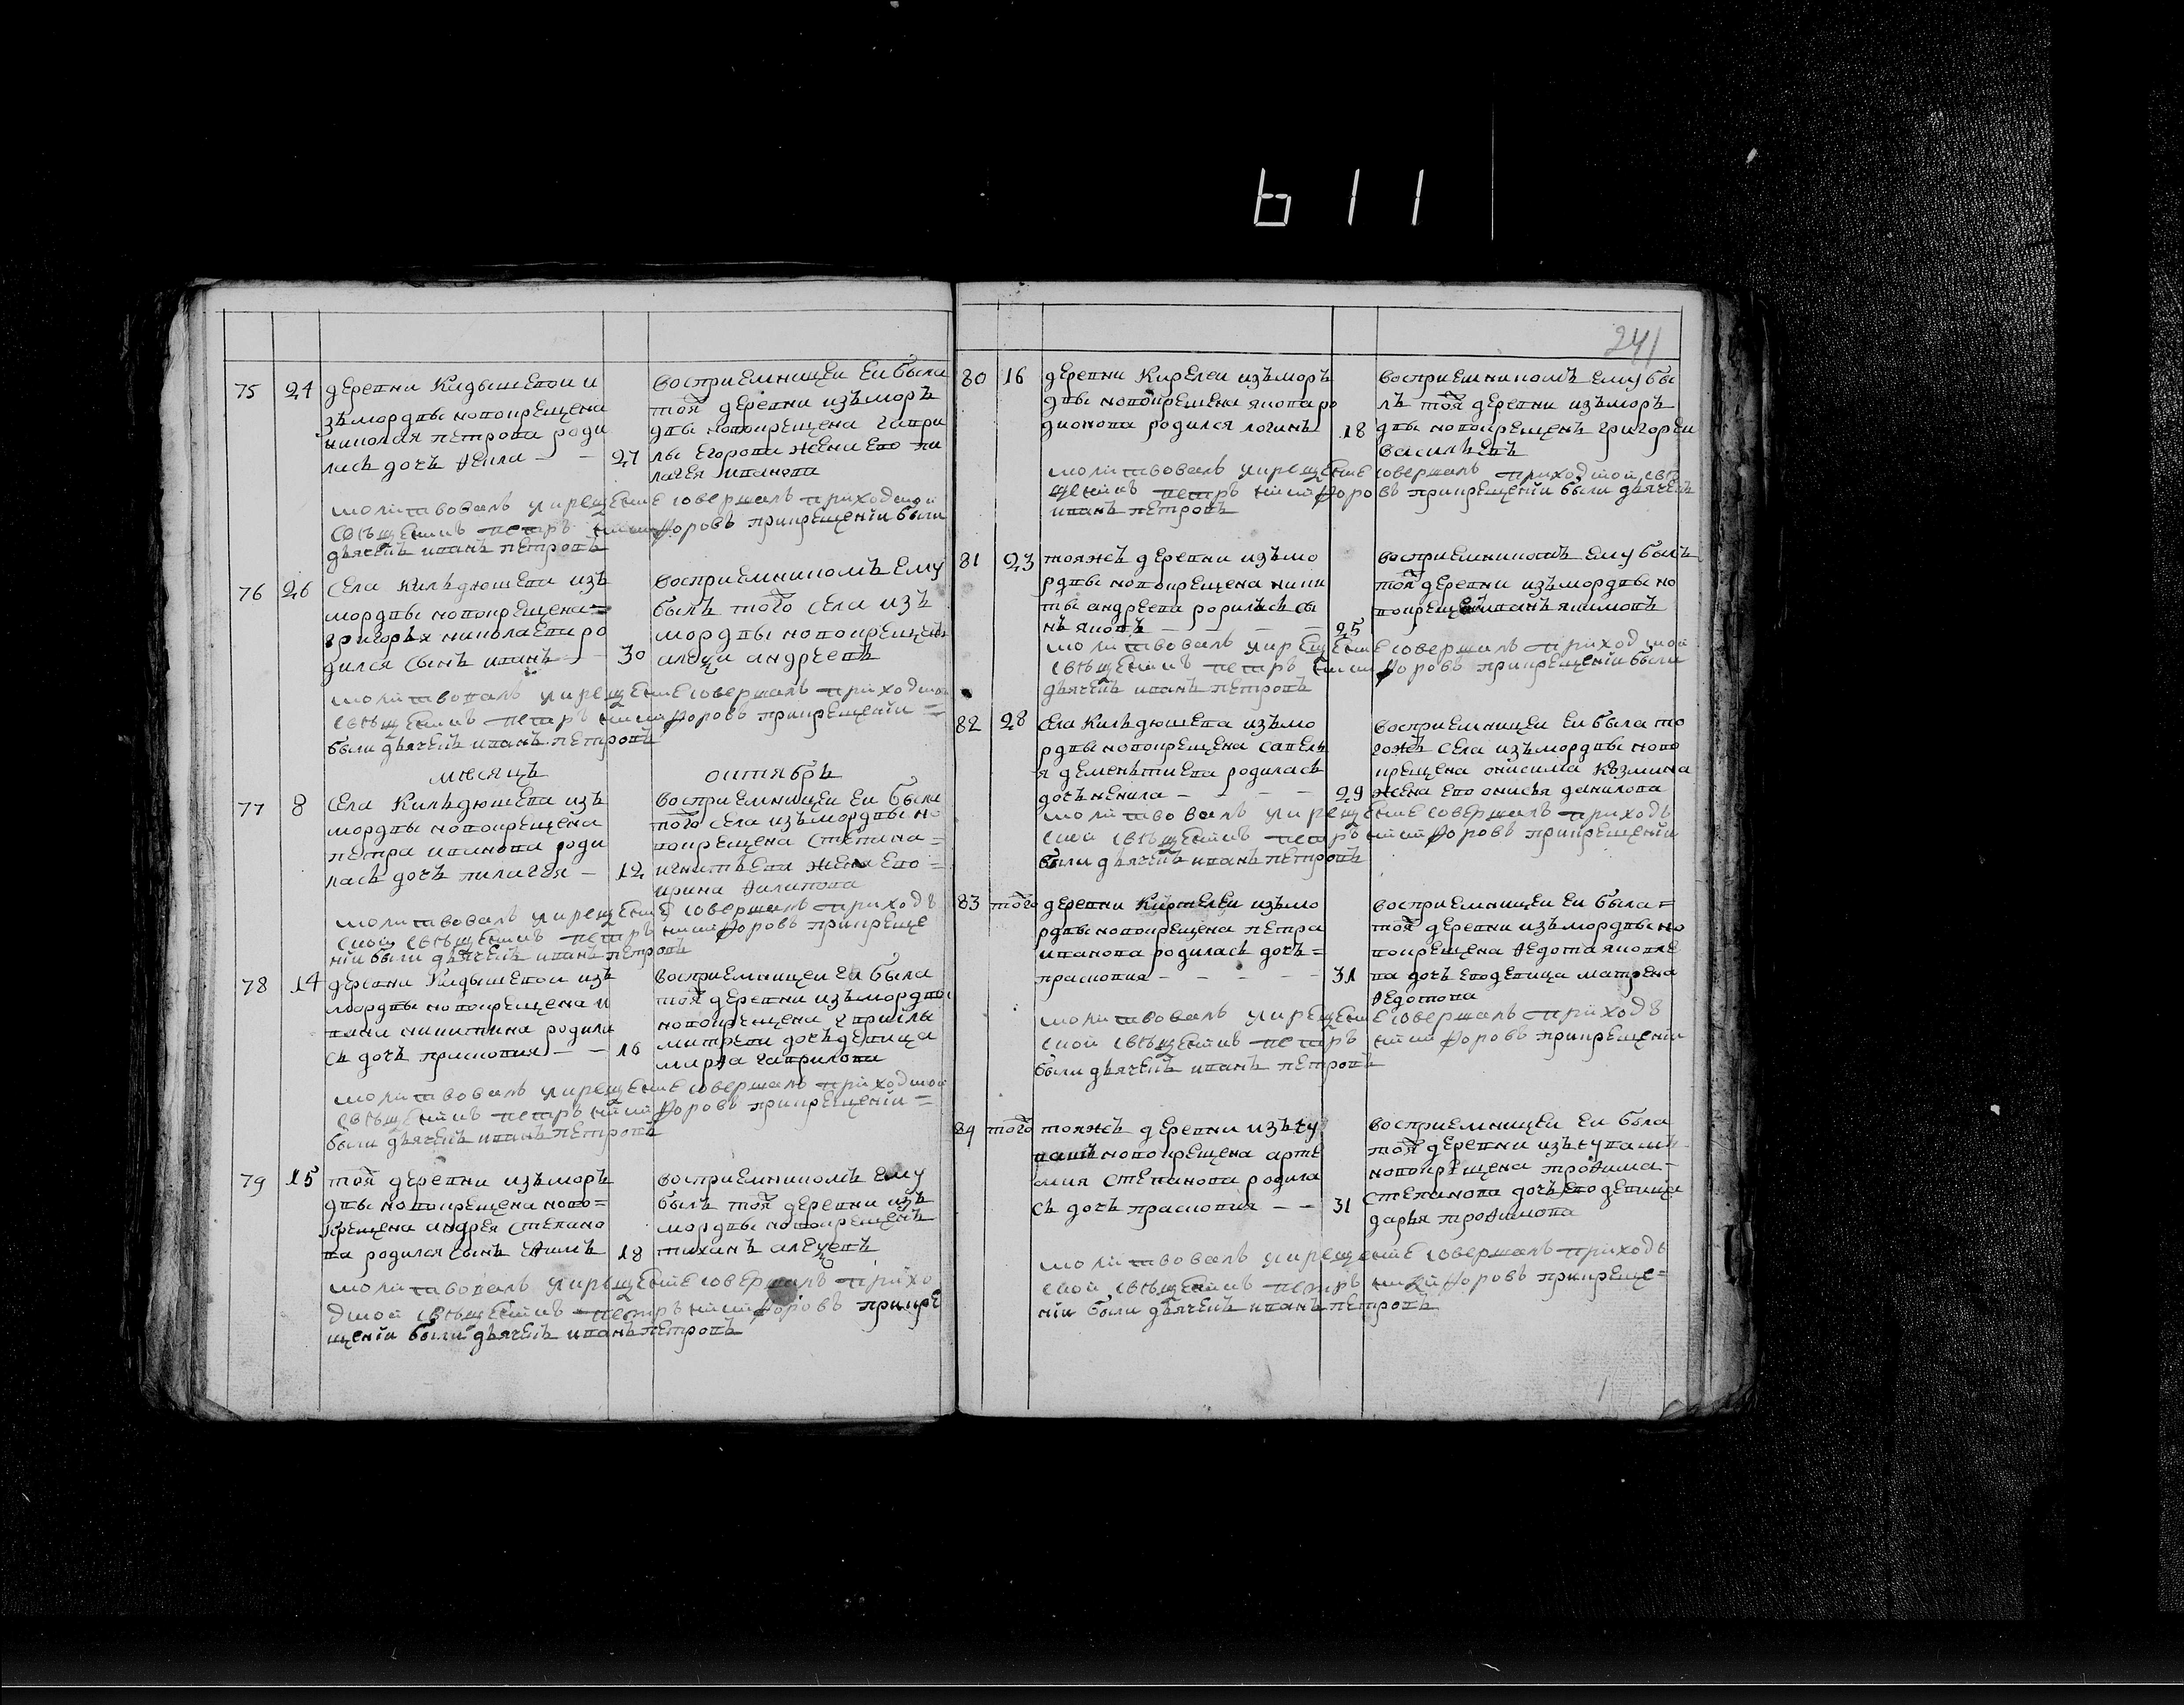 611
241
75 24 деревни Кидышевои и
зъ мордвы новокрещена
николая петрова роди
лась дочь Фекла — — 27
восприемницеи еи была
тоя деревни изъ морЪ
двы новокрещена гаври
лы Егорова жена Ево пи
лагея иванова
молитвовалъ икрещение совершалъ приходской
священникъ петръ никифоровъ прикрещении были
дьячекъ иванъ петровъ
76 26 села Кильдюшева изъ
мордвы новокрещена=
григорья николаева ро
дился сынъ иванъ — 30
восприемникомъ Ему
былъ того села изъ
мордвы новокрещенъ
алеѯи андреевъ
молитвовалъ икрещение совершалъ приходской
священникъ петръ никифоровъ прикрещении =
были дьячекъ иванъ петровъ
месяцъ октябрь
77 8 села Кильдюшева изъ
мордвы новокрещена
петра иванова роди
лась дочь пилагея — 12
восприемницеи еи была
того села изъ мордвы но
вокрещена степана=
игнатьева жена Ево=
ирина Филипова
молитвовалъ икрещение совершалъ приход
ской священникъ петръ никифоровъ прикреще
нии были дьячекъ иванъ петровъ
78 14 деревни Кидышевои изъ
мордвы новокрещена и
вана никитина родила
сь дочь прасковия — — 16
восприемницеи еи была
тоя деревни изъ мордвы
новокрещена гаврилы
дочь девица
марфа гаврилова
молитвовалъ икрещение совершалъ приходской
священникъ петръ никифоровъ прикрещении =
были дьячекъ иванъ петровъ
79 15 тоя деревни изъ морЪ
двы новокрещена ново=
крещена андрея степано
ва родился сынъ Ефимъ 18
восприемникомъ Ему
былъ тоя деревни изъ
мордвы новокрещенъ
тиханъ алеѯевъ
молитвовалъ икрещение совершалъ прихо
дской священникъ петръ никифоровъ прикре
щении были дьячекъ иванъ петровъ
80 16 деревни Кирелеи изъ морЪ
двы новокрещена якова ро
дионова родился логинъ 18
восприемникомъ Ему бы
лъ тоя деревни изъ морЪ
двы новокрещенъ григореи
васильевъ
молитвовалъ икрещение совершалъ приходской свя
щенникъ петръ никифоровъ прикрещении были дьячекъ
иванъ петровъ
81 23 тояжъ деревни изъ мо
рдвы новокрещена ники
ты андреева родилъсь сы
нъ яковъ — — — — 25
восприемникомъ Ему былъ
тоя деревни изъ мордвы но
вокрещенъ иванъ якимовъ
молитвовалъ икрещение совершалъ приходской
священникъ петръ никифоровъ прикрещении были
дьячекъ иванъ петровъ
82 28 села Кильдюшева изъ мо
рдвы новокрещена савель
я дементиева родилась
дочь ненила — — — — 29
восприемницеи еи была то
гожъ села изъ мордвы ново
крещена онисима Козмина
жена Ево анисья данилова
молитвовалъ икрещение совершалъ приходъ
ской священникъ петръ никифоровъ прикрещении
были дьячекъ иванъ петровъ
83 того деревни Киртелеи изъ мо
рдвы новокрещена петра
иванова родилась дочь=
прасковия — — — — 31
восприемницеи еи была=
тоя деревни изъ мордвы но
вокрещена Федота яковле
ва дочь Ево девица матрена
Федотова
молитвовалъ икрещение совершалъ приход
ской священникъ петръ никифоровъ прикрещении
были дьячекъ иванъ петровъ
84 того тояжъ деревни изъ чу
вашъ новокрещена арте
мия степанова родила
сь дочь прасковия — — 31
восприемницеи еи была
тоя деревни изъ чувашъ
новокрещена трофима—
степанова дочь Ево девица
дарья трофимова
молитвовалъ икрещение совершалъ приходъ
ской священникъ петръ никифоровъ прикреще=
нии были дьячекъ иванъ петровъ